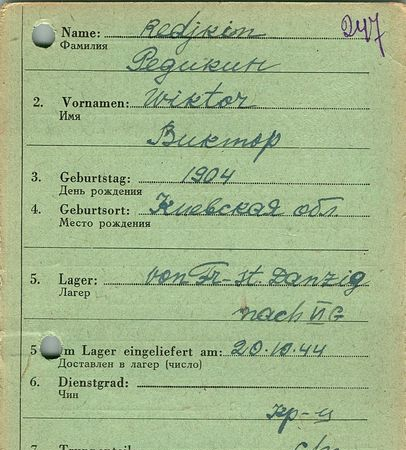 Name: Redjkin 247
Фамилия
Редикин
2. Vornamen: Wiktor
Имя
Виктор
3. Geburtstag: 1904
День рождения
4. Geburtsort: Киевская обл.
Место рождения
5. Lager: von Fr-St. Danzig
Лагер
nach II G
5 Im Lager eingeliefert am: 20.10.44
Доставлен в лагер (число)
6. Dienstgrad:
Чин
кр-ц
7. Truppenteil
с/п